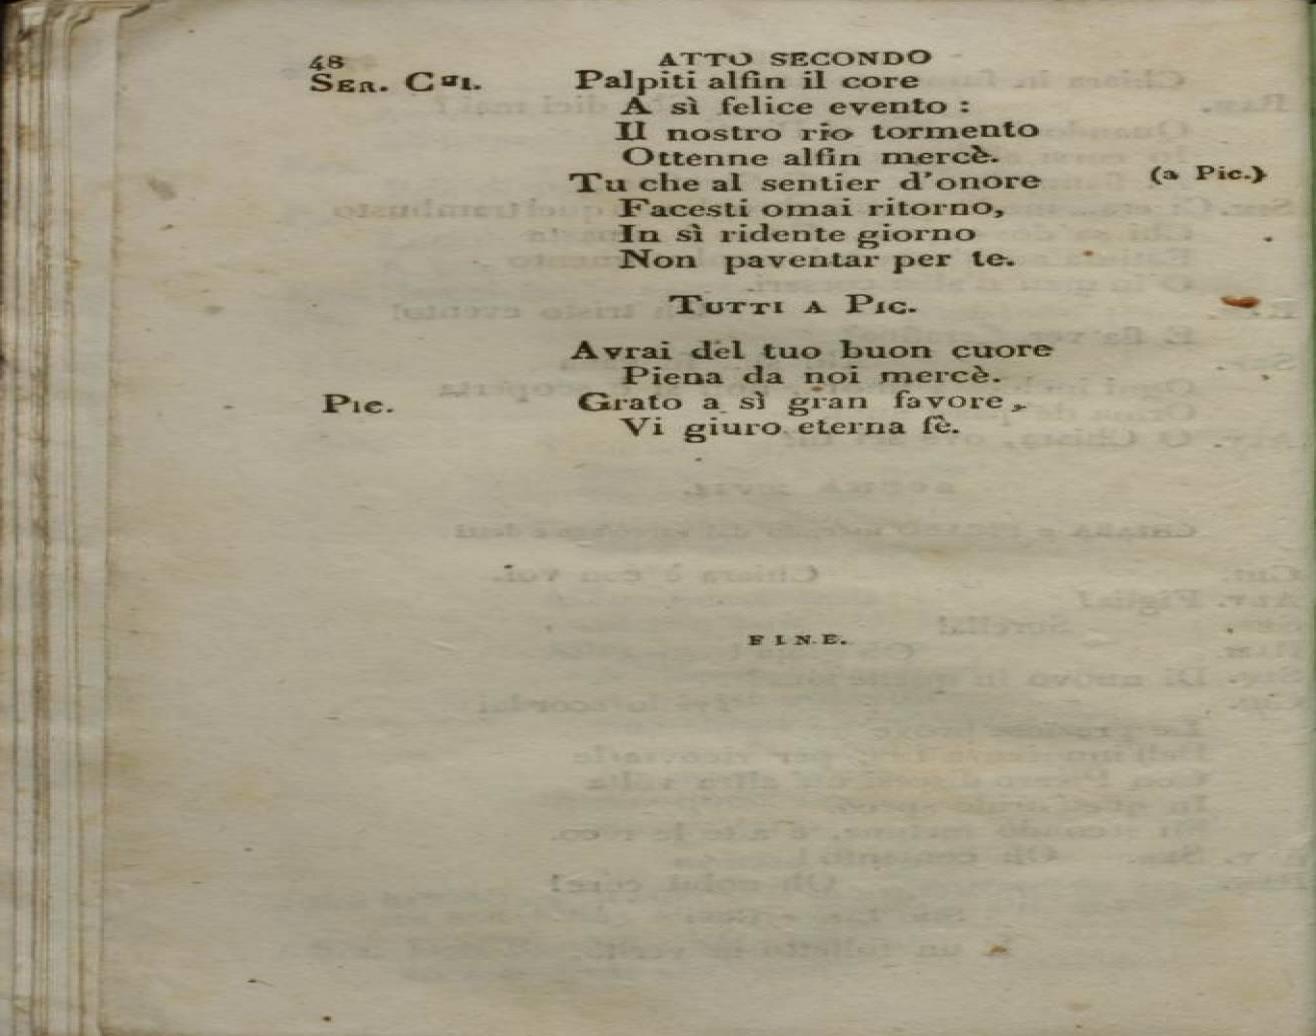 48 ATTO SECONDO
SER. CHI. Palpiti alfin il core
A sì felice evento :
Il nostro rio tormento
Ottenne alfin mercè.
Tu che al sentier d'onore (a Pic.)
Facesti omai ritorno,
In sì ridente giorno
Non paventar per te.
TUTTI A PIC.
Avrai del tuo buon cuore
Piena da noi mercè.
PIC. Grato a sì gran favore,
Vi giuro eterna fè.
FINE.